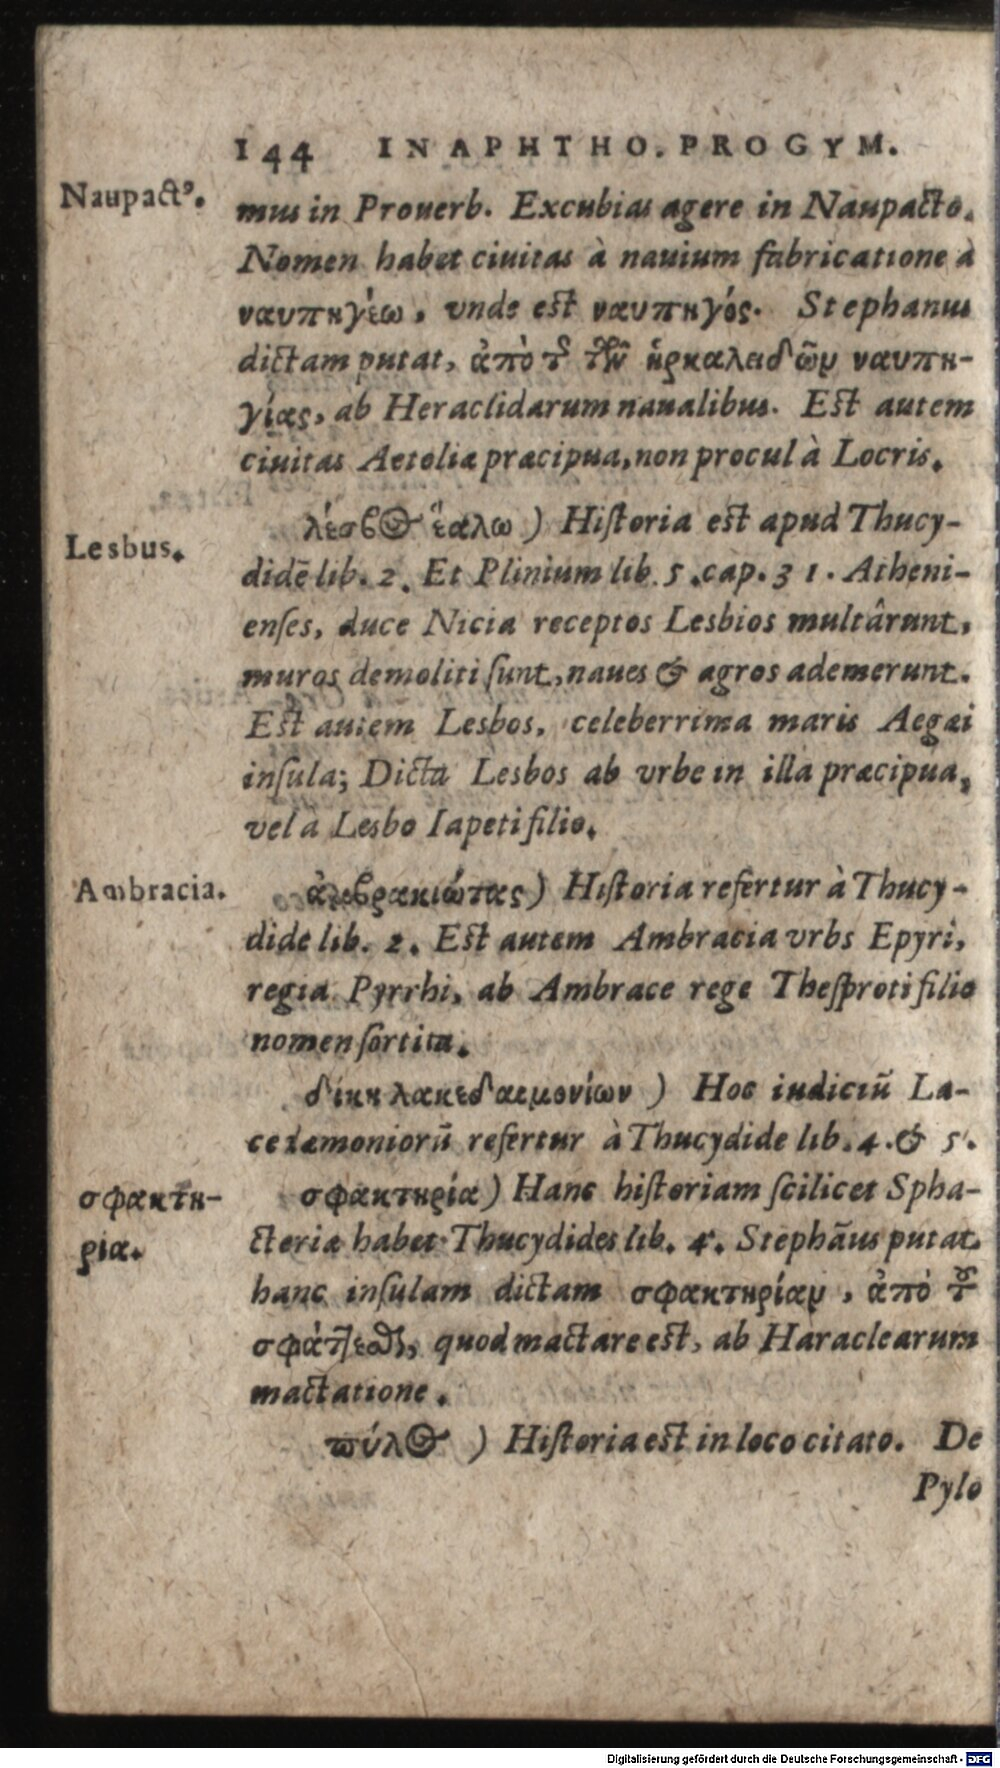 144 IN APHTHO. PROGYM.
Naupactꝰ.
mus in Prouerb. Excubias agere in Naupacto.
Nomen habet ciuitas à nauium fabricatione à
ναυπηγέω, vnde est ναυπηγός. Stephanus
dictam putat, ἀπὸ τ͂ τῶν ἡρκαλειδῶν ναυπη-
γίας, ab Heraclidarum naualibus. Est autem
ciuitas Aetoliæ præcipua, non procul à Locris.
Lesbus.
λέσβος ἑάλω ) Hiſtoria est apud Thucy-
didē lib. 2. Et Plinium lib. 5. cap. 31. Atheni-
enſes, duce Nicia receptos Lesbios multârunt,
muros demoliti ſunt, naues & agros ademerunt.
Est autem Lesbos, celeberrima maris Aegæi
inſula; Dicta Lesbos ab vrbe in illa præcipua,
vel à Lesbo Iapeti filio.
Ambracia.
ἀμβρακιώτας ) Hiſtoria refertur à Thucy-
dide lib. 2. Est autem Ambracia vrbs Epyri,
regia Pyrrhi, ab Ambrace rege Theſproti filio
nomen ſortita.
δίκη λακεδαιμονίων ) Hoc iudiciū La-
cedæmoniorū refertur à Thucydide lib. 4. & 5.
σφακτη-
ρία.
σφακτηρία ) Hanc hiſtoriam ſcilicet Spha-
cteriæ habet Thucydides lib. 4. Stephāus putat
hanc inſulam dictam σφακτηρίαν, ἀπὸ τȣ͂
σφάτ]εϑαι, quod mactare est, ab Haraclearum
mactatione.
πύλος ) Hiſtoria est in loco citato. De
Pylo
Digitalisierung gefördert durch die Deutsche Forschungsgemeinschaft - DFG